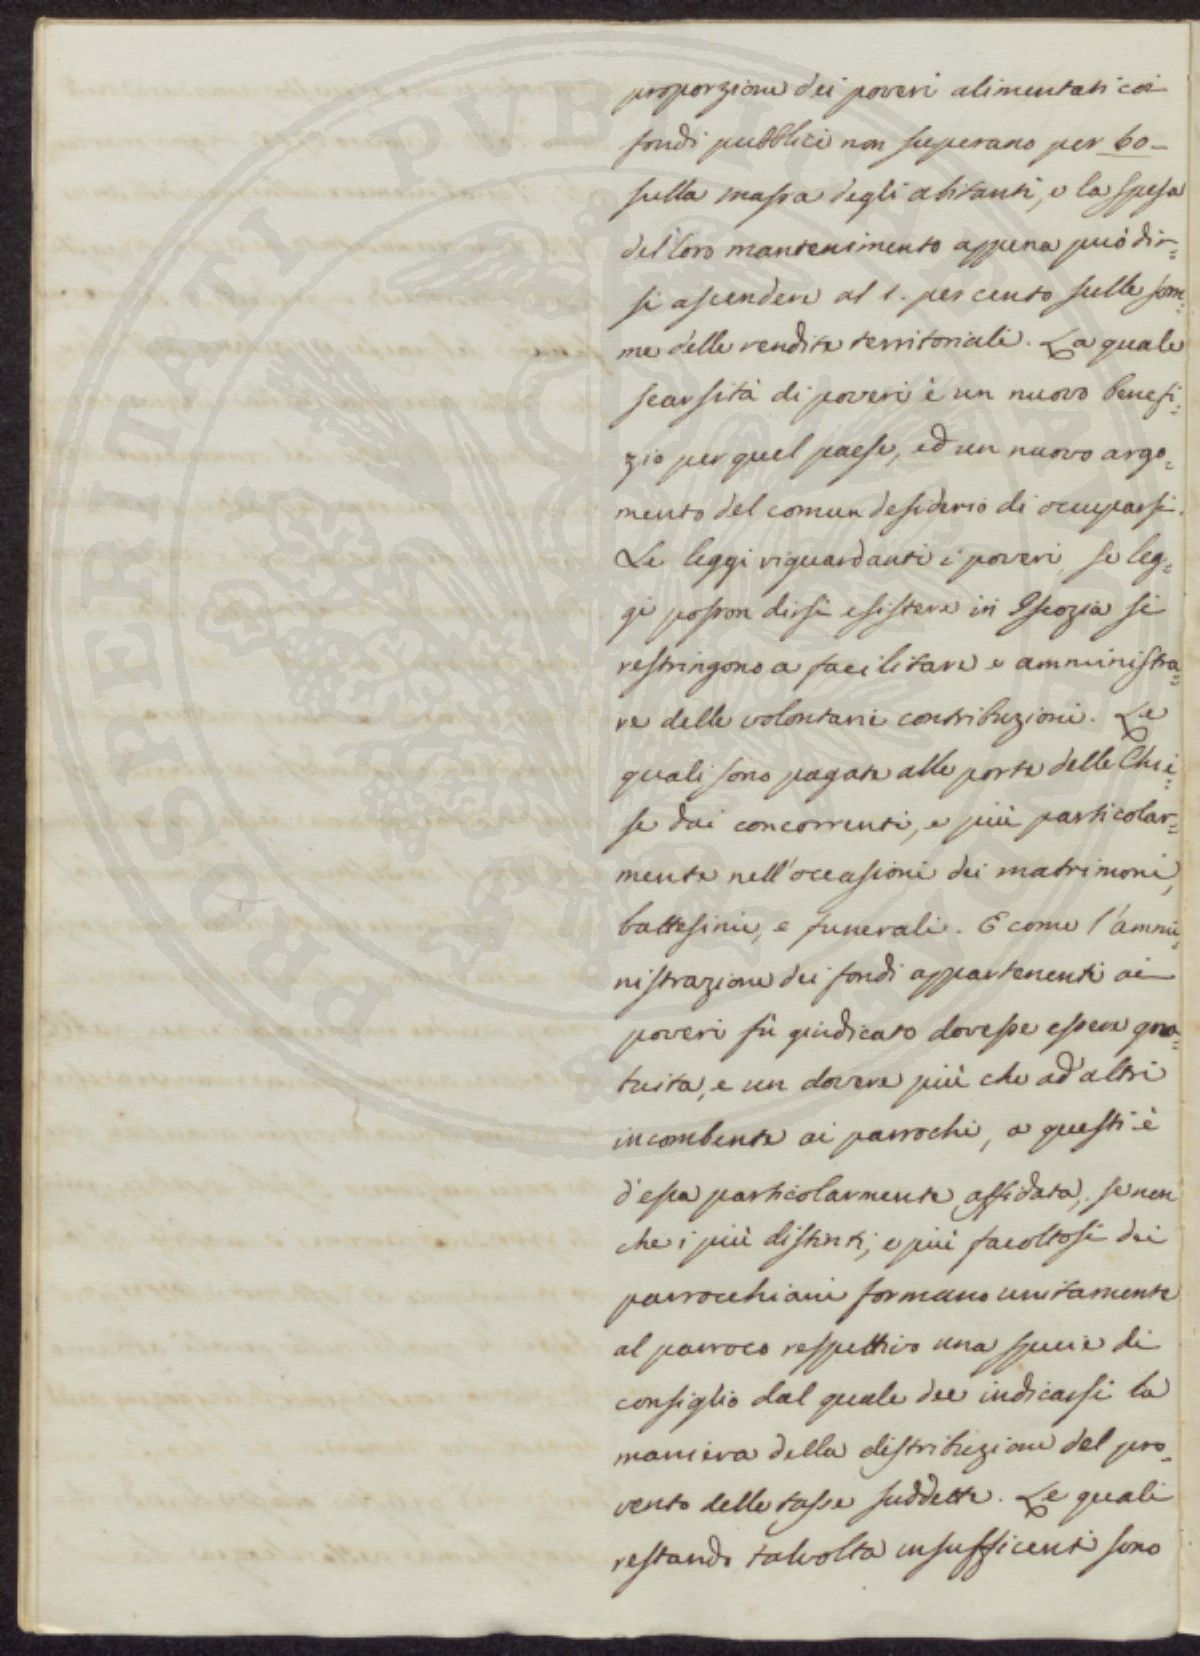 proporzione dei poveri alimentati coi
fondi pubblici non superano per 60-
sulla massa degli abitanti, e la spesa
del loro mantenimento appena può dir=
si ascendere al 1. per cento sulle som=
me delle rendite territoriali. La quale
scarsità di poveri è un nuovo benefi=
zio per quel paese, ed un nuovo argo=
mento del comun desiderio di occuparsi.
Le leggi riguardanti i poveri, se leg=
gi posson dirsi esistere in Iscozia si
restringono a facilitare e amministra=
re delle volontarie contribuzioni. Le
quali sono pagate alle porte delle Chie=
se dai concorrenti, e più particolar=
mente nell'occasioni dei matrimoni,
battesimi, e funerali. E come l'ammi=
nistrazione dei fondi appartenenti ai
poveri fù giudicato dovesse essere gra=
tuita, e un dovere più che ad altri
incombente ai parrochi, a questi è
d'essa particolarmente affidata, se non
che i più distinti, e più facoltosi dei
parrocchiani formano unitamente
al parroco respettivo una specie di
consiglio dal quale dee indicarsi la
maniera della distribuzione del pro=
vento delle tasse suddette. Le quali
restando talvolta insufficenti sono
PROSPERITATI PVBLICAE